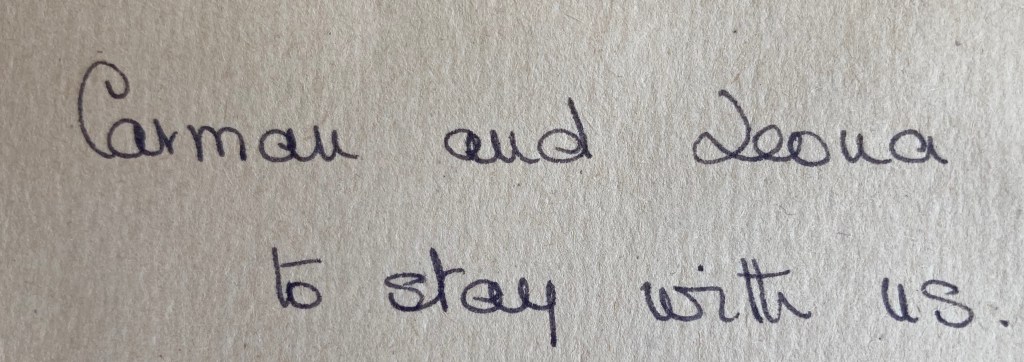 Carman and Leona
to stay with us.